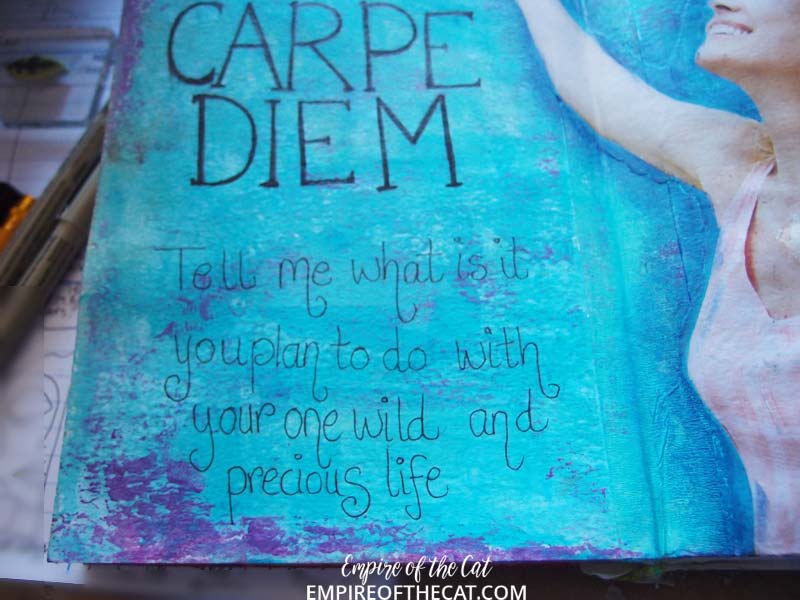 CARPE
DIEM
Tell me what is it
you plan to do with
your one wild and
precious life
Empire of the Cat
EMPIREOFTHECAT.COM